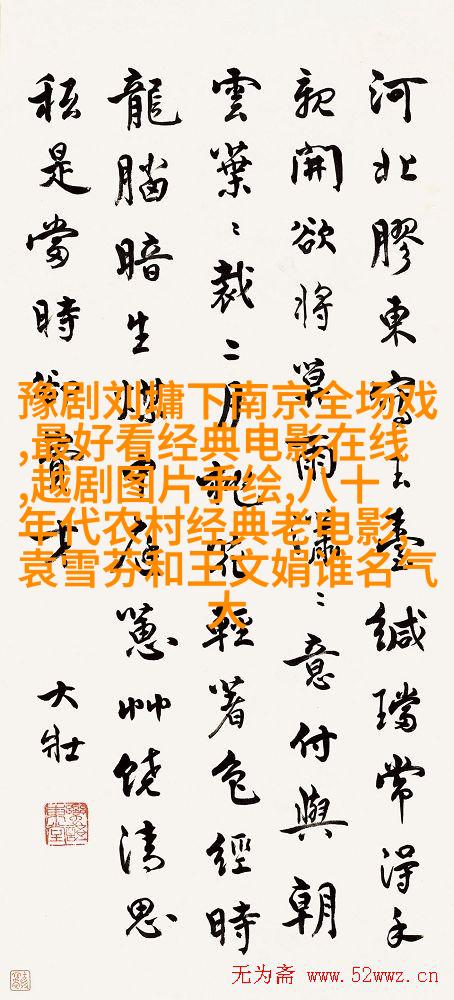 河北膠東寄玉臺緘璫常得手
親開欲將暮雨瀟〻意付與朝
雲葉〻裁二月桃花輕著色經時
龍腦暗生煤蔥艸饒清思
秖是當時
大壯
豫剧刘墉下南京全场戏
,最好看经典电影在线
,越剧图片手绘,八十
年代农村经典老电影,
袁雪芬和王文娟谁名气
大
无为斋 www.52wwz.cn